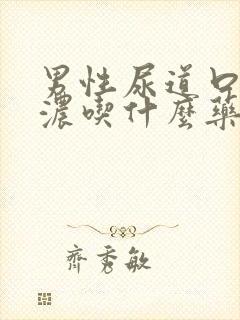 男性尿道口
濃喫什麼藥
齊秀敏